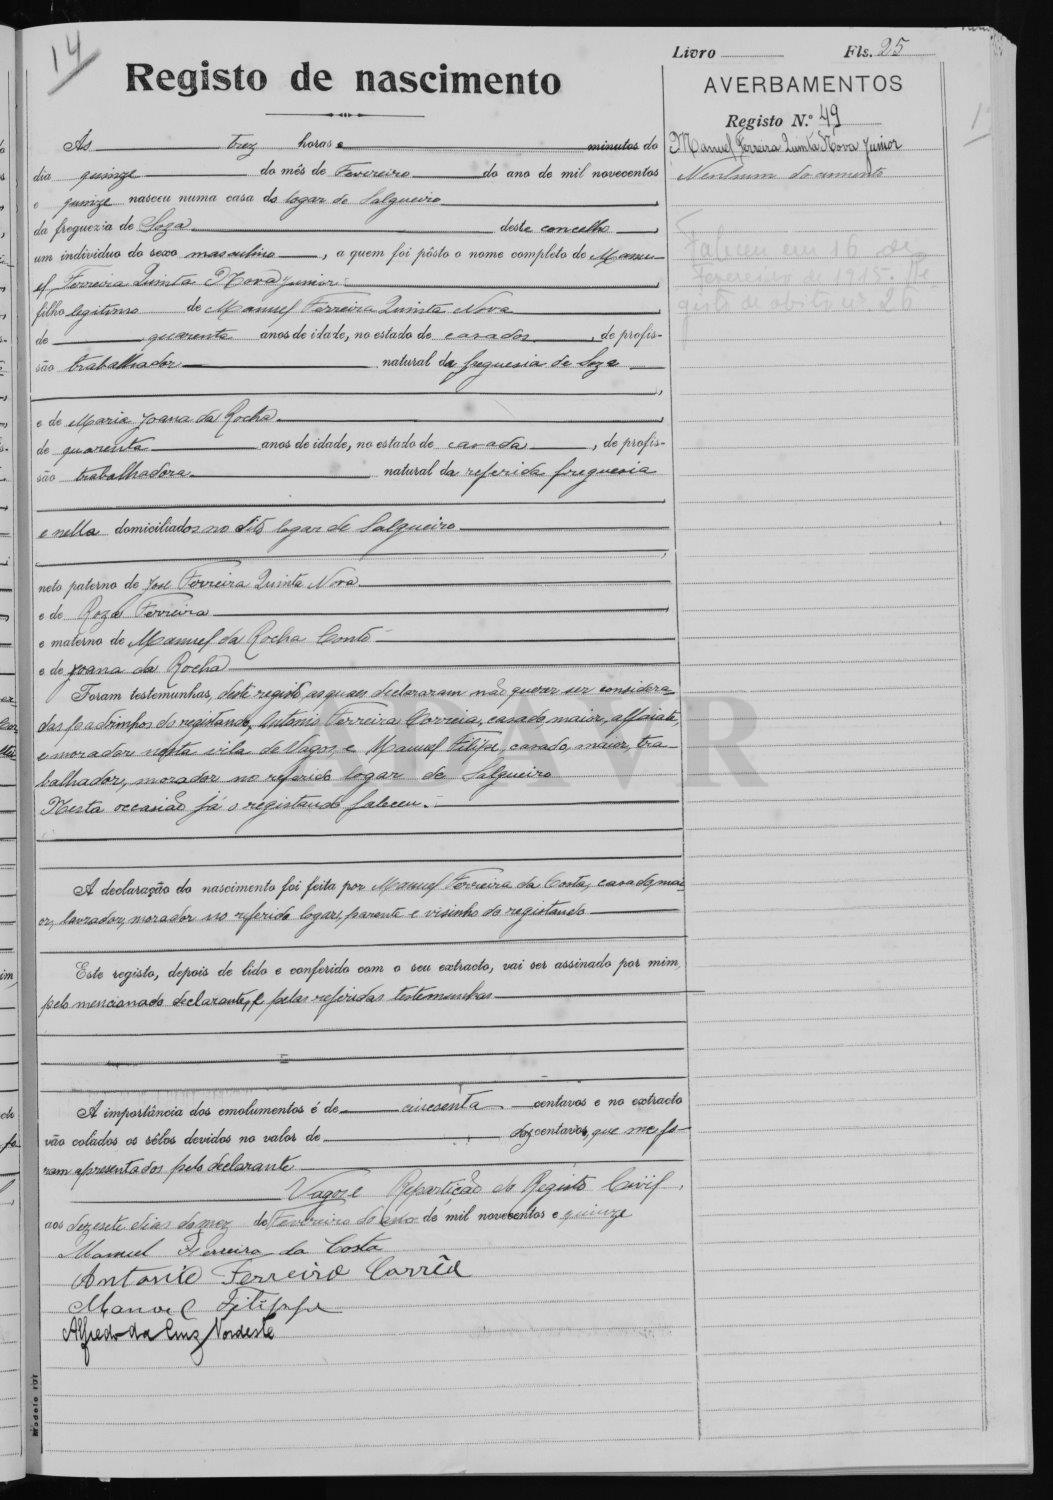 14
Livro Fls. 25
Registo de nascimento
AVERBAMENTOS
Registo N.º 49
Manuel Ferreira Quinta Nova Junior
Nenhum documento
Faleceu em 16 de
Fevereiro de 1915. Re-
gisto de obito nº 26
Ás trez horas e minutos do
dia quinze do mês de Fevereiro do ano de mil novecentos
e quinze nasceu numa casa do logar de Salgueiro
da freguezia de Soza deste concelho,
um individuo do sexo masculino, a quem foi pôsto o nome completo de Manu-
el Ferreira Quinta Nova Junior
filho legitimo de Manuel Ferreira Quinta Nova
de quarenta anos de idade, no estado de casados, de profis-
são trabalhador natural da freguesia de Soza
e de Maria Joana da Rocha
de quarenta anos de idade, no estado de casada, de profis-
são trabalhadora natural da referida freguesia
e nella domiciliados no dito logar de Salgueiro
neto paterno de José Ferreira Quinta Nova
e de Roza Ferreira
e materno de Manuel da Rocha Conto
e de Joana da Rocha
Foram testemunhas, deste registo, as quaes declararam não querer ser considera-
das padrinhos do registando, Antonio Ferreira Correia, casado, maior, alfaiate,
e morador nesta vila de Vagos, e Manuel Filipe, casado, maior, tra-
balhador, morador no referido logar de Salgueiro
Nesta occasião já o registando faleceu.
A declaração do nascimento foi feita por Manuel Ferreira da Costa, casado, mai-
or, lavrador, morador no referido logar, parente e visinho do registando
Este registo, depois de lido e conferido com o seu extracto, vai ser assinado por mim,
pelo mencionado declarante, e pelas referidas testemunhas
A importância dos emolumentos é de cincoenta centavos e no extracto
vão colados os sêlos devidos no valor de dez centavos, que me fo-
ram apresentados pelo declarante
Vagos e Repartição do Registo Civil,
aos dezesete dias do mez de Fevereiro do ano de mil novecentos e quinze
Manuel Ferreira da Costa
Antonio Ferreira Corrêa
Manoel Filippe
Alfredo da Cruz Nordeste
Modelo 101
ADAVR